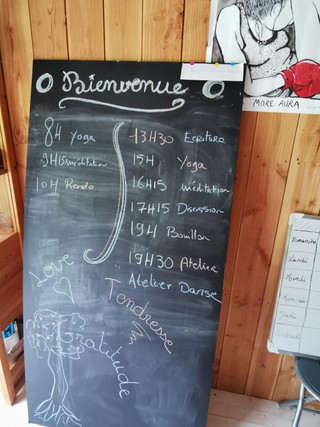 Bienvenue
8H Yoga
9H15 méditation
10H Rando
13H30 Ecriture
15H Yoga
16H15 méditation
17H15 Discussion
19H Bouillon
19H30 Atelier
Atelier Danse
Love
Tendresse
Gratitude
MORE AURA
Dimanche
Lundi
Mardi
Mercredi
Jeudi